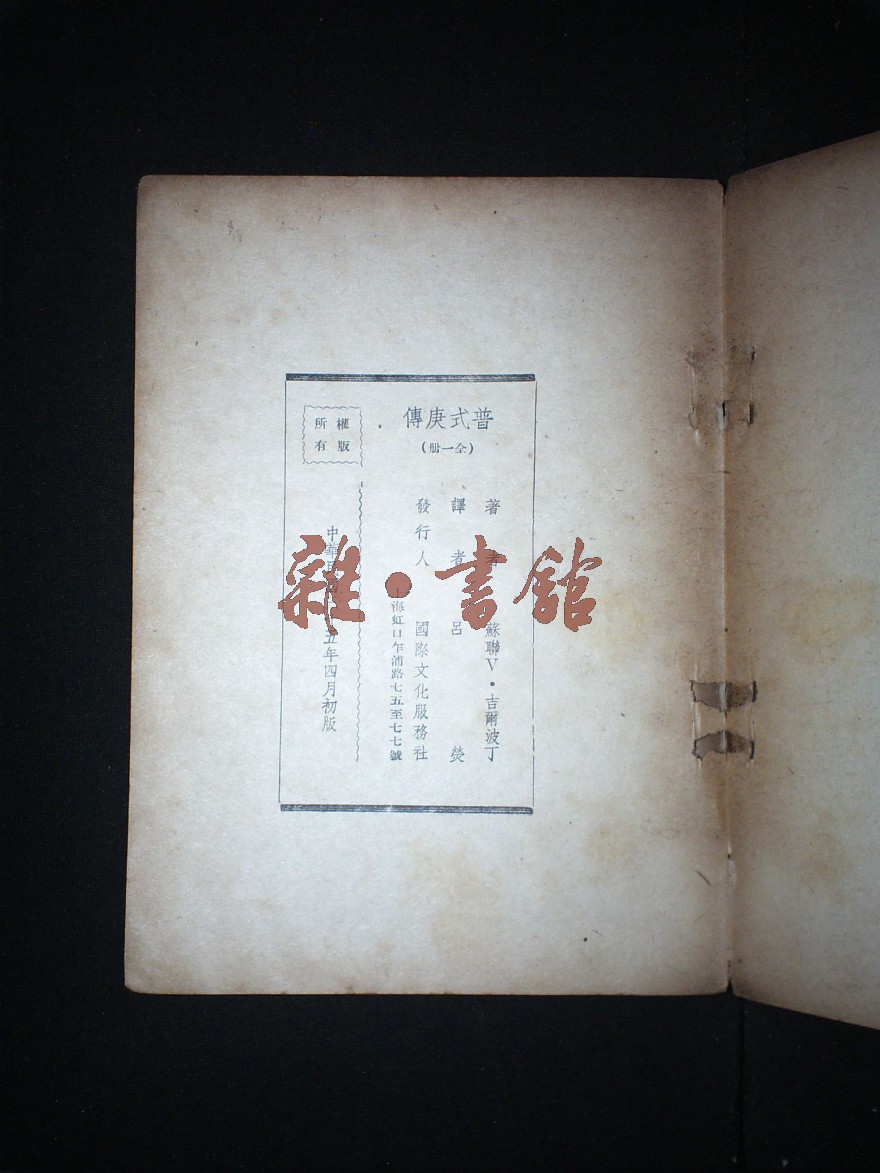 普式庚傳
(全一册)
著者 蘇聯V·吉爾波丁
譯者 呂熒
發行人 國際文化服務社
上海虹口乍浦路七五至七七號
權版所有
中華民國 五年四月初版
雜·書館